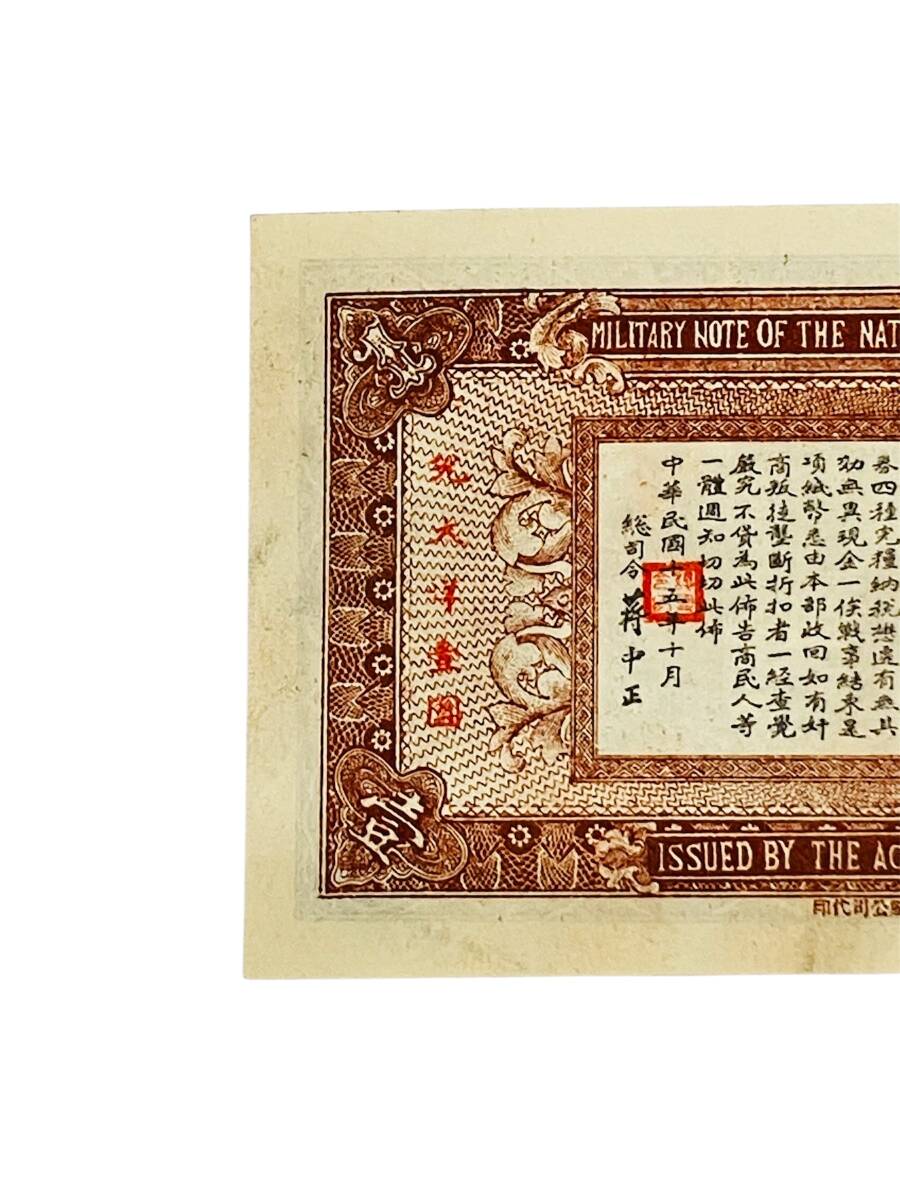 MILITARY NOTE OF THE NAT
1
兌大洋壹圓
券四種完糧納稅想遠有無具
効無異現金一俟戰事結束是
項紙幣悉由本部收回如有奸
商叛徒壟斷折扣者一經查覺
嚴究不貸為此佈告商民人等
一體週知切切此佈
中華民國十五年十月
總司令蔣中正
壹
ISSUED BY THE AC
公司代印